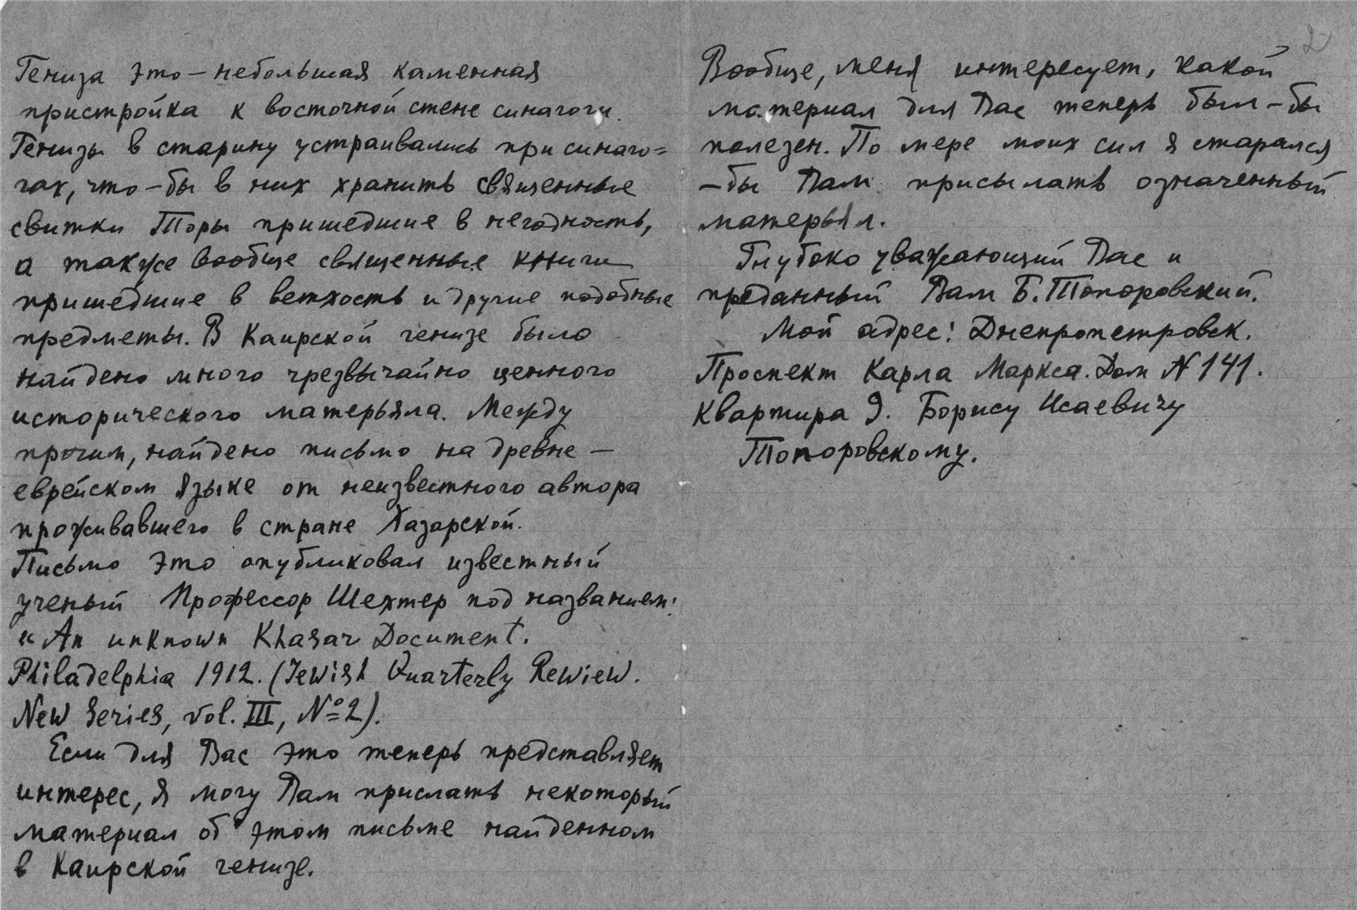 Гениза это – небольшая каменная
пристройка к восточной стене синагоги.
Генизы в старину устраивались при синаго=
гах, что-бы в них хранить священные
свитки Торы пришедшие в негодность,
а также вообще священные книги
пришедшие в ветхость и другие подобные
предметы. В Каирской генизе было
найдено много чрезвычайно ценного
исторического матерьяла. Между
прочим, найдено письмо на древне –
еврейском языке от неизвестного автора
проживавшего в стране Хазарской.
Письмо это опубликовал известный
ученый Профессор Шехтер под названием:
"An unknown Khasar Document.
Philadelphia 1912. (Jewish Quarterly Rewiew.
New Series, vol. III, № 2).
Если для Вас это теперь представляет
интерес, я могу Вам прислать некоторый
материал об этом письме найденном
в Каирской генизе.
2
Вообще, меня интересует, какой
материал для Вас теперь был-бы
полезен. По мере моих сил я старался
-бы Вам присылать означенный
матерьял.
Глубоко уважающий Вас и
преданный Вам Б. Топоровский.
Мой адрес: Днепропетровск.
Проспект Карла Маркса. Дом № 141.
Квартира 9. Борису Исаевичу
Топоровскому.